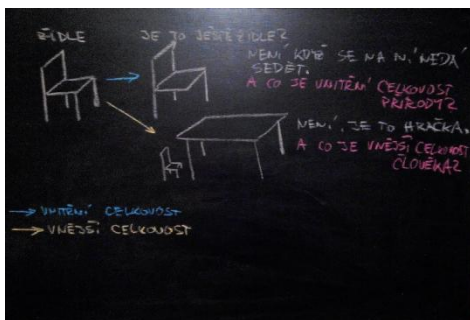 ŽIDLE
JE TO JEŠTĚ ŽIDLE?
NENÍ KDYŽ SE NA NÍ NEDÁ
SEDĚT.
A CO JE VNITŘNÍ CELKOVOST
PŘÍRODY?
NENÍ, JE TO HRAČKA.
A CO JE VNĚJŠÍ CELKOVOST
ČLOVĚKA?
VNITŘNÍ CELKOVOST
VNĚJŠÍ CELKOVOST